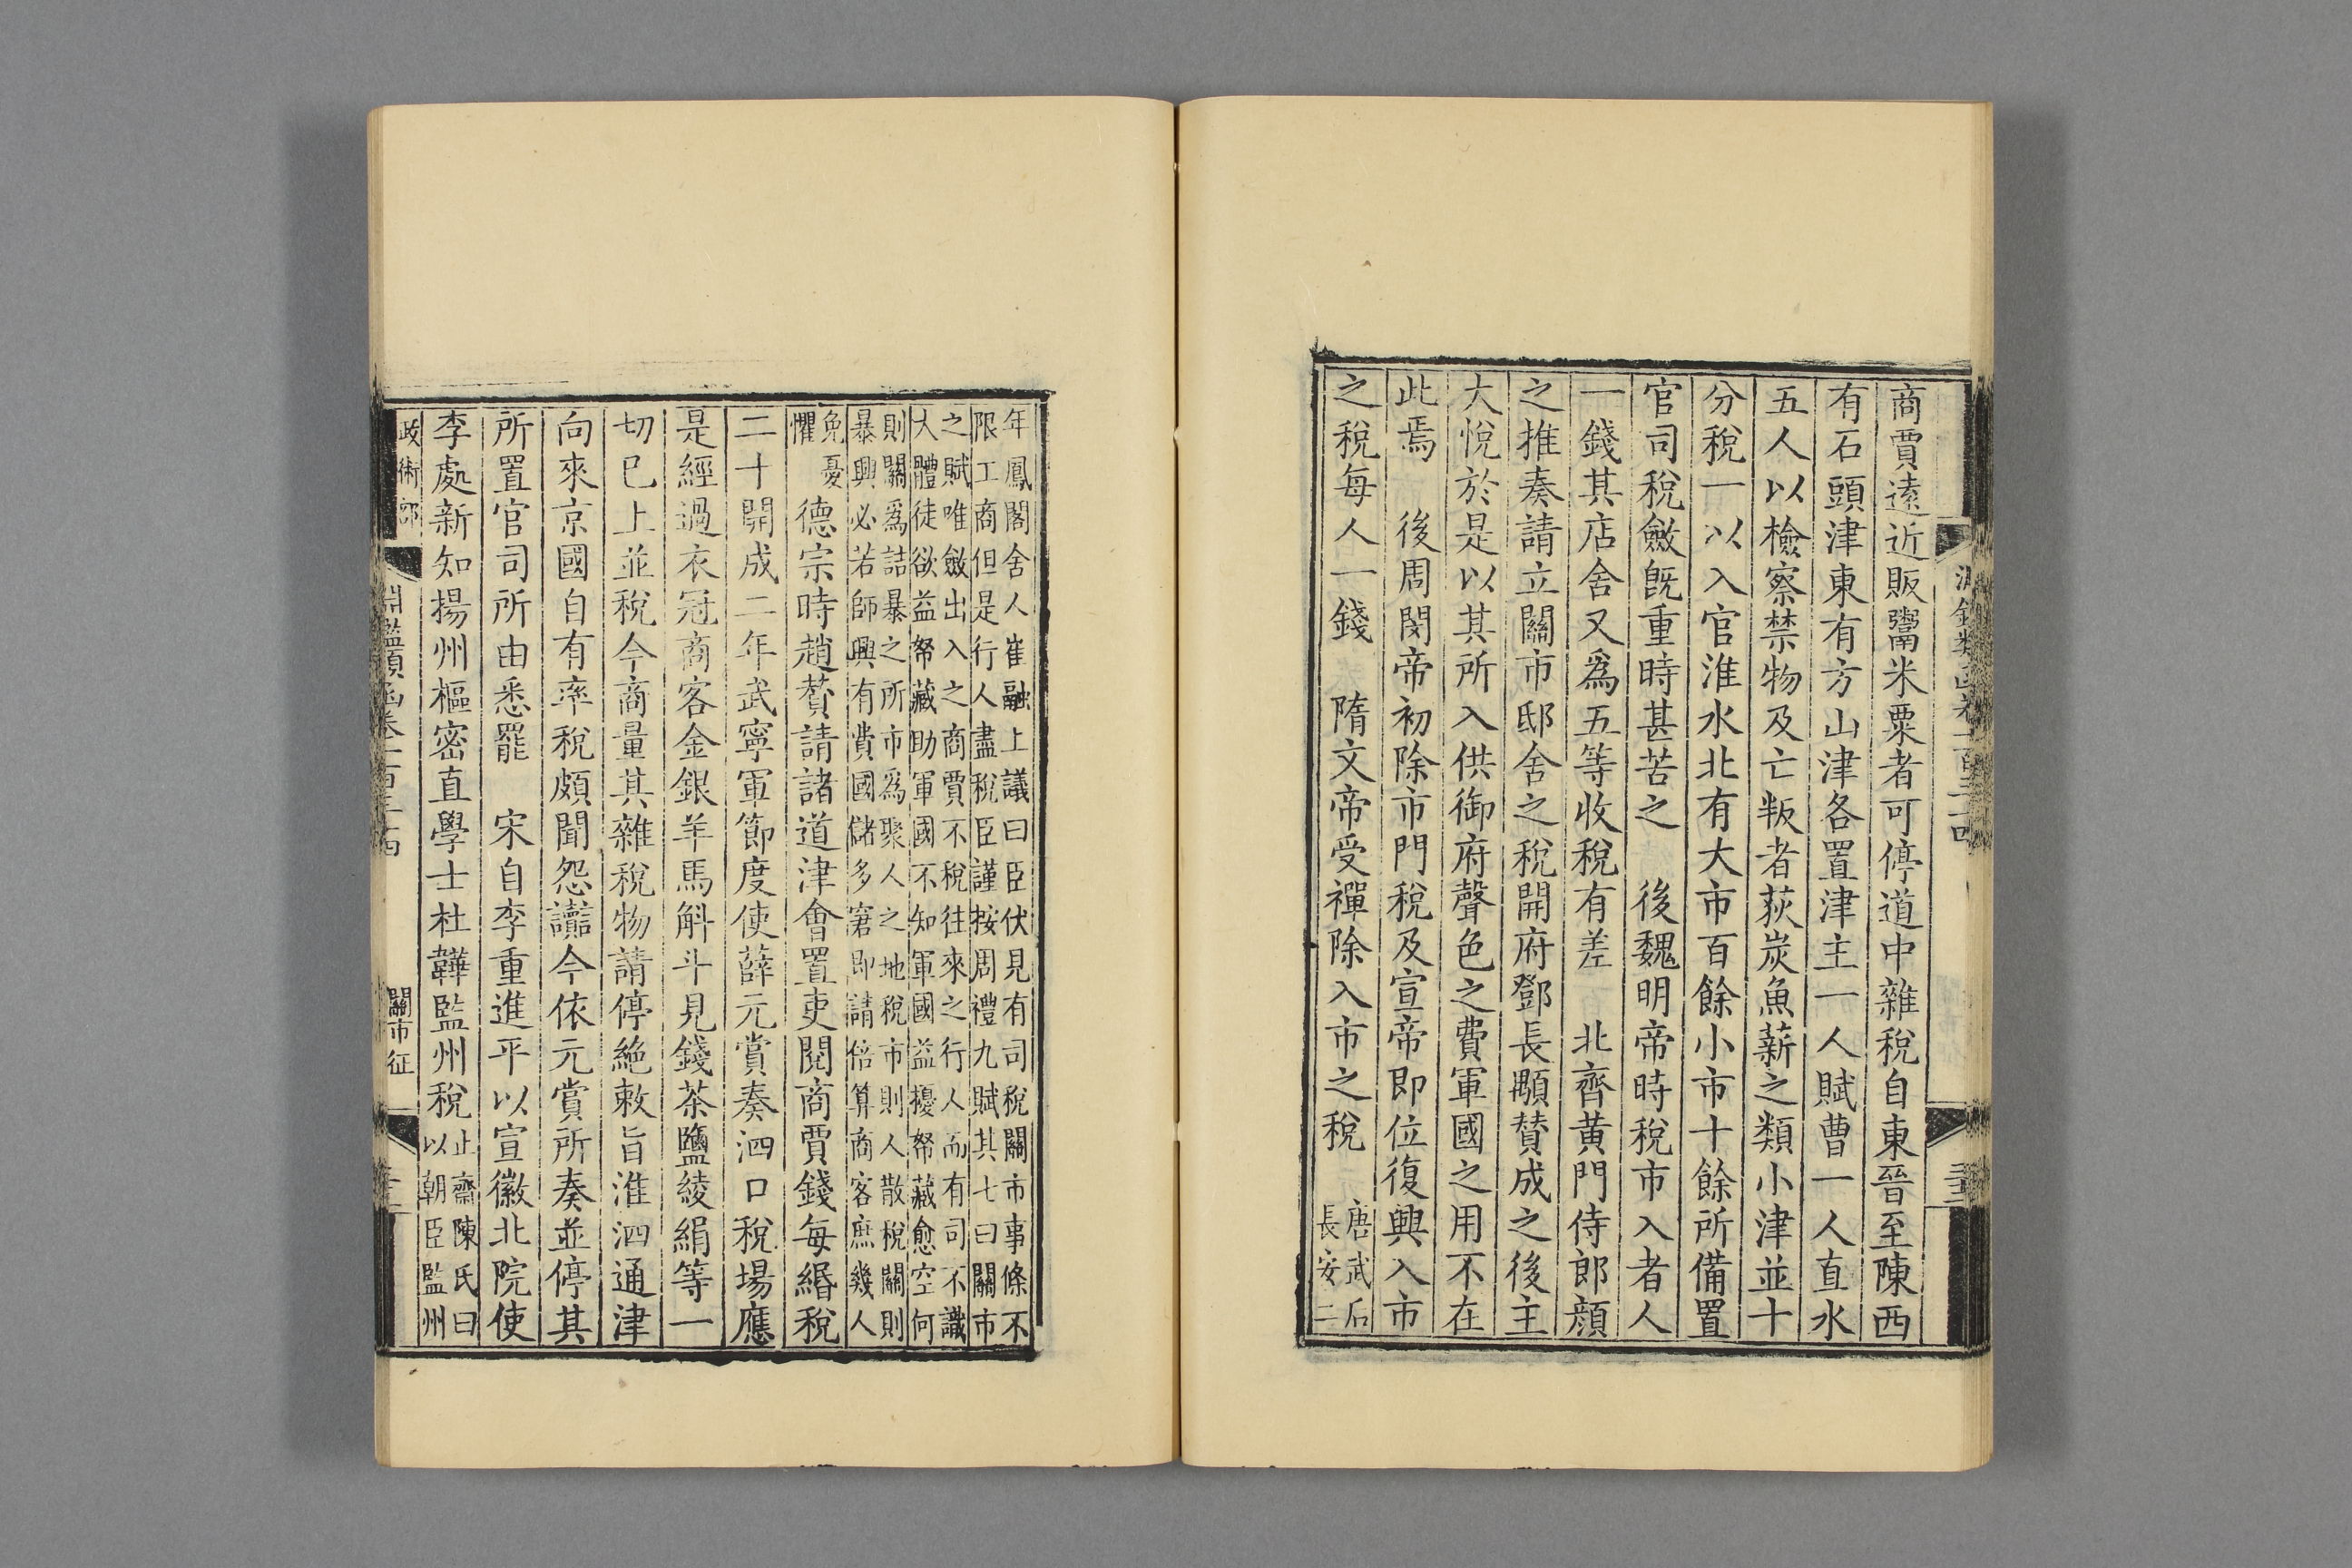 商賈遠近販鬻米粟者可停道中雜税自東晉至陳西
有石頭津東有方山津各置津主一人賦曹一人直水
五人以檢察禁物及亡叛者荻炭魚薪之類小津並十
分税一以入官淮水北有大市百餘小市十餘所備置
官司税斂旣重時甚苦之　後魏明帝時税市入者人
一錢其店舍又爲五等收税有差　北齊黄門侍郎顔
之推奏請立關市邸舍之税開府鄧長顒贊成之後主
大悅於是以其所入供御府聲色之費軍國之用不在
此焉　後周閔帝初除市門税及宣帝即位復興入市
之税每人一錢　隋文帝受禪除入市之税
唐武后
長安二
年鳳閣舍人崔融上議曰臣伏見有司税關市事條不
限工商但是行人盡税臣謹按周禮九賦其七曰關市
之賦唯斂出入之商賈不税往來之行人而有司不識
大體徒欲益帑藏助軍國不知軍國益擾帑藏愈空何
則關爲詰暴之所市爲聚人之地税市則人散税關則
暴興必若師興有費國儲多窘即請倍算商客庶幾人
免憂
懼
德宗時趙贊請諸道津會置吏閱商賈錢每緡税
二十開成二年武寧軍節度使薛元賞奏泗口税場應
是經過衣冠商客金銀羊馬斛斗見錢茶鹽綾絹等一
切已上並税今商量其雜税物請停絶敕旨淮泗通津
向來京國自有率税頗聞怨讟今依元賞所奏並停其
所置官司所由悉罷　宋自李重進平以宣徽北院使
李處新知揚州樞密直學士杜韡監州税
止齋陳氏曰
以朝臣監州
政術部
淵鑑類函卷一百三十四
關市征